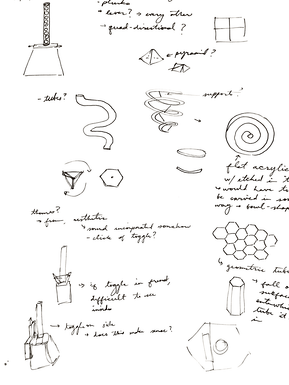 - plinko
→ lever? → every other
- quad-directional?
← pyramid?
- tube?
support?
flat acrylic
w/ etched in
→ would have to
be carved in some
way → bowl-shap
themes?
→ from aesthetic
→ sound incorporated somehow
- click of toggle?
↳ geometric tube
→ if toggle in front,
difficult to see
inside
→ fall
surface
tube it
in
→ toggle on side
→ does this make sense?